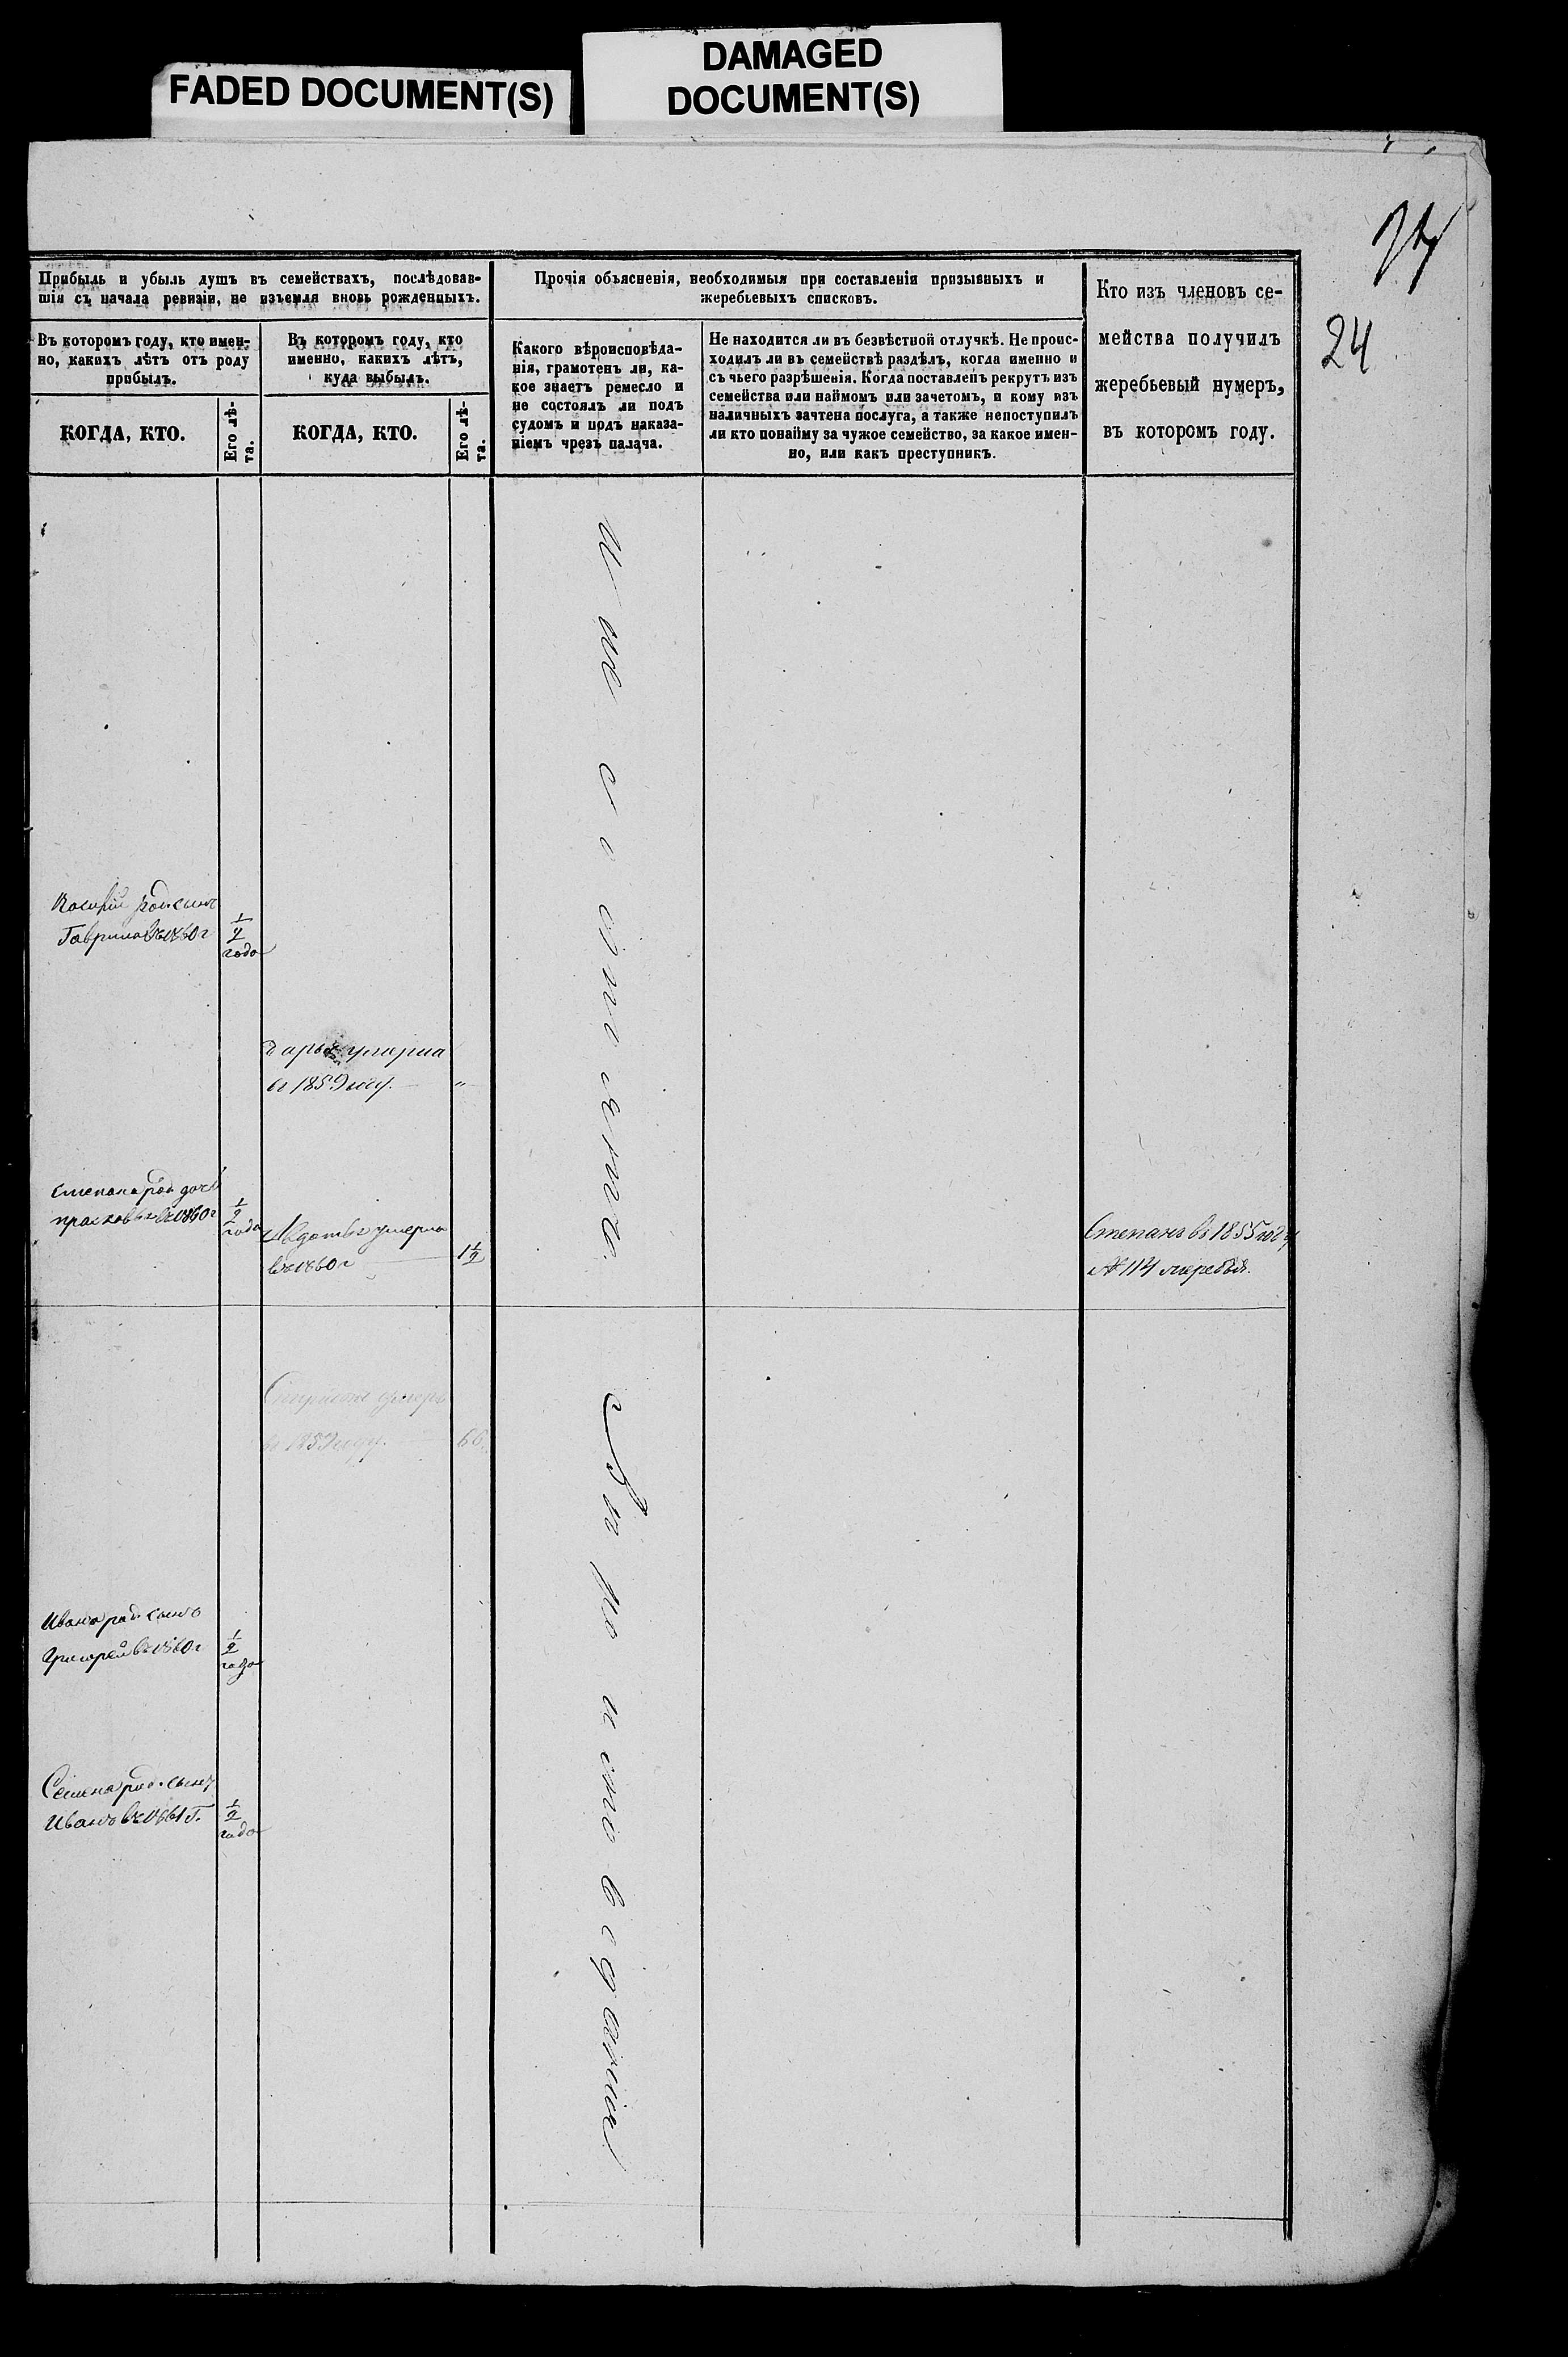 FADED DOCUMENT(S)
DAMAGED
DOCUMENT(S)
24
Прибыль и убыль душъ въ семействахъ, послѣдовав-
шія съ начала ревизіи, не изъемля вновь рожденныхъ.
Прочія объясненія, необходимыя при составленіи призывныхъ и
жеребьевыхъ списковъ.
Кто изъ членовъ се-
мейства получилъ
жеребьевый нумеръ,
въ которомъ году.
Въ которомъ году, кто имен-
но, какихъ лѣтъ отъ роду
прибылъ.
Въ которомъ году, кто
именно, какихъ лѣтъ,
куда выбылъ.
Какого вѣроисповѣда-
нія, грамотенъ ли, ка-
кое знаетъ ремесло и
не состоялъ ли подъ
судомъ и подъ наказа-
ніемъ чрезъ палача.
Не находится ли въ безвѣстной отлучкѣ. Не проис-
ходилъ ли въ семействѣ раздѣлъ, когда именно и
съ чьего разрѣшенія. Когда поставленъ рекрутъ изъ
семейства или наймомъ или зачетомъ, и кому изъ
наличныхъ зачтена послуга, а также непоступилъ
ли кто понайму за чужое семейство, за какое имен-
но, или какъ преступникъ.
КОГДА, КТО.
Его лѣ-
та.
КОГДА, КТО.
Его лѣ-
та.
род. сынъ
Гаврила въ 1860 г
1/2
года
Дарья умерла
въ 1859 году.
"
Степана род дочь
прасковья въ 1860 г
1/2
года
Авдотья умерла
въ 1860 г
1 1/2
Степанъ въ 1855 году
№ 114 жеребья.
умеръ
въ 1859 году.
66
Ивана род. сынъ
Григорей въ 1860 г
1/2
года
Семена род. сынъ
Иванъ въ 1861 г.
1/2
года